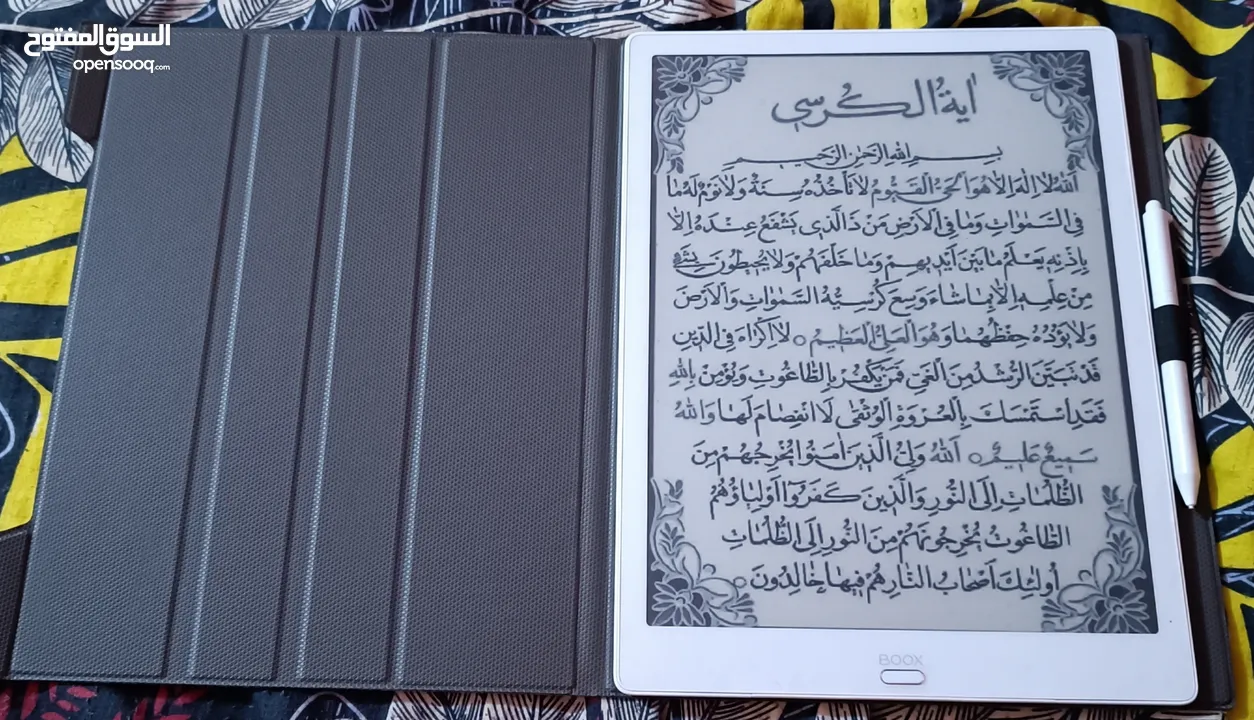 السوق المفتوح
opensooq.com
اٰية الكرسي
بِسْمِ اللهِ الرَّحْمٰنِ الرَّحِيْمِ
اَللهُ لَا اِلٰهَ اِلَّا هُوَ اَلْحَيُّ الْقَيُّوْمُ لَا تَأْخُذُهٗ سِنَةٌ وَلَا نَوْمٌ لَهٗ مَا
فِى السَّمٰوَاتِ وَمَا فِى الْاَرْضِ مَنْ ذَا الَّذِىْ يَشْفَعُ عِنْدَهٗ اِلَّا
بِاِذْنِهٖ يَعْلَمُ مَا بَيْنَ اَيْدِيْهِمْ وَمَا خَلْفَهُمْ وَلَا يُحِيْطُوْنَ بِشَىْءٍ
مِنْ عِلْمِهٖ اِلَّا بِمَا شَاءَ وَسِعَ كُرْسِيُّهُ السَّمٰوَاتِ وَالْاَرْضَ
وَلَا يَؤُدُهٗ حِفْظُهُمَا وَهُوَ الْعَلِىُّ الْعَظِيْمُ ○ لَا اِكْرَاهَ فِى الدِّيْنِ
قَدْ تَبَيَّنَ الرُّشْدُ مِنَ الْغَىِّ فَمَنْ يَكْفُرْ بِالطَّاغُوْتِ وَيُؤْمِنْ بِاللهِ
فَقَدِ اسْتَمْسَكَ بِالْعُرْوَةِ الْوُثْقٰى لَا انْفِصَامَ لَهَا وَاللهُ
سَمِيْعٌ عَلِيْمٌ ○ اَللهُ وَلِىُّ الَّذِيْنَ اٰمَنُوْا يُخْرِجُهُمْ مِنَ
الظُّلُمَاتِ اِلَى النُّوْرِ وَالَّذِيْنَ كَفَرُوْا اَوْلِيَاؤُهُمُ
الطَّاغُوْتُ يُخْرِجُوْنَهُمْ مِنَ النُّوْرِ اِلَى الظُّلُمَاتِ
اُولٰئِكَ اَصْحَابُ النَّارِ هُمْ فِيْهَا خَالِدُوْنَ ○
BOOX